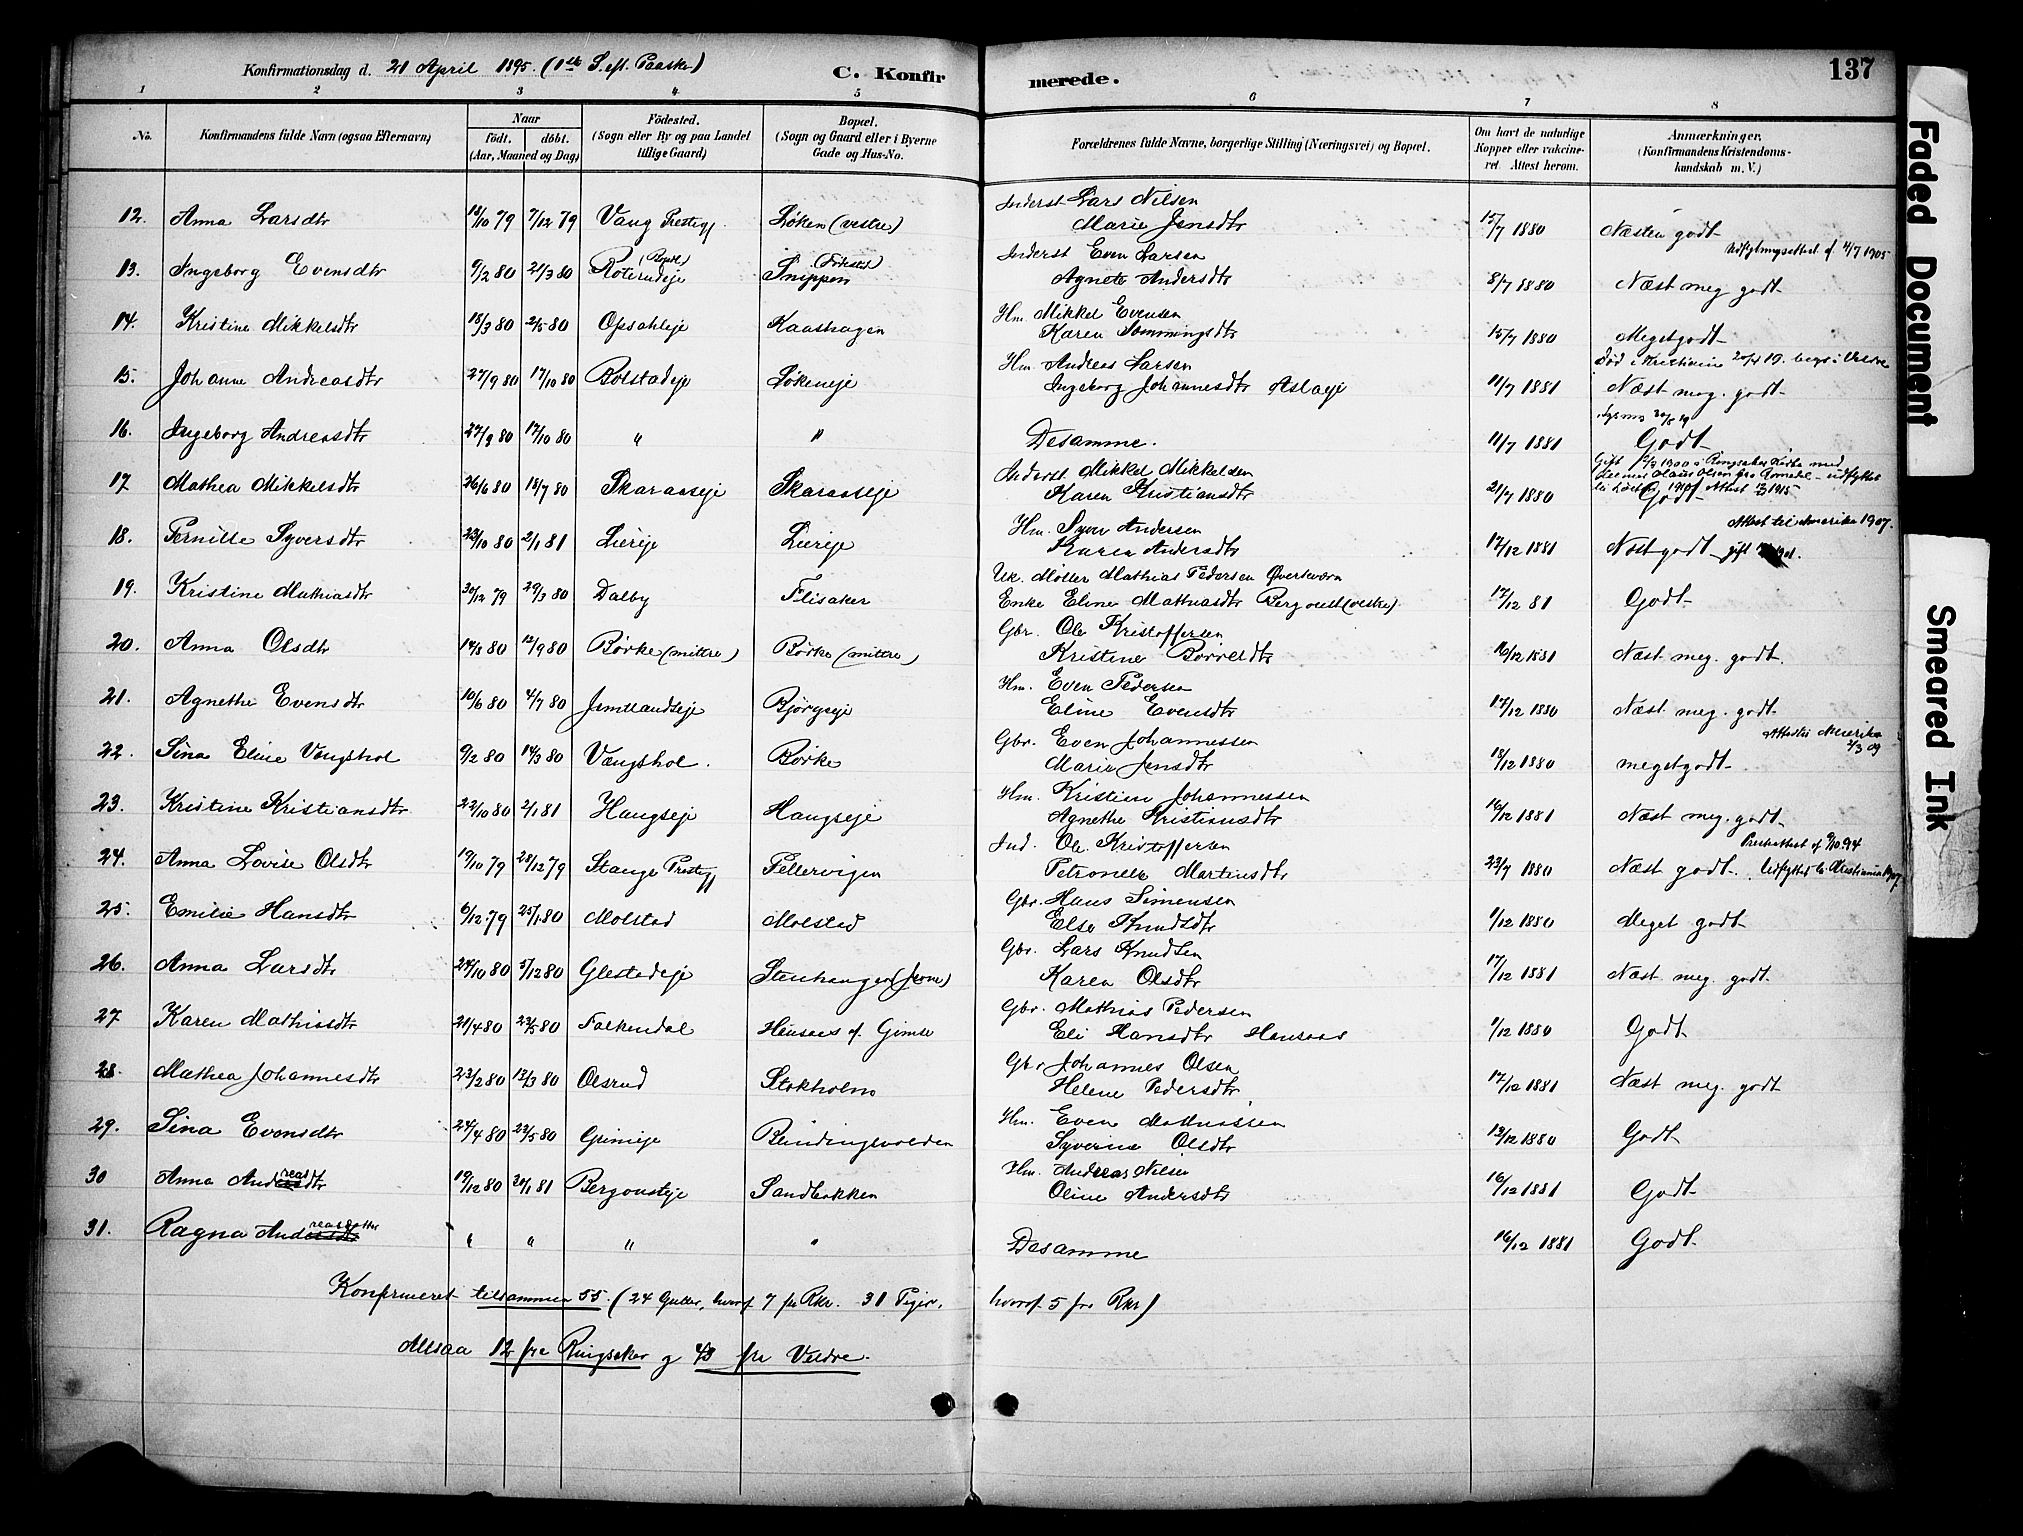 Konfirmationsdag d. 21 April 1895. (1ste S. eft. Paaske)
C. Konfirmerede.
137
1 2 3 4 5 6 7 8
No. Konfirmandens fulde Navn (ogsaa Efternavn) Naar födt. döbt. (Aar, Maaned og Dag) Födested. (Sogn eller By og paa Landet tillige Gaard) Bopæl. (Sogn og Gaard eller i Byerne Gade og Hus-No. Forældrenes fulde Navne, borgerlige Stilling (Næringsvei) og Bopæl. Om havt de naturlige Kopper eller vakcineret. Attest herom. Anmærkninger. (Konfirmandens Kristendomskundskab m. V.)
12. Anna Larsdtr 12/10 79 7/12 79 Vang Prestegj. Løken (vestre) Inderst Lars Nilsen
Marie Jensdtr 15/7 1880 Næsten godt
13. Ingeborg Evensdtr 9/2 80 21/3 80 Roterudeje Snippen Inderst Even Larsen
Agnete Andersdtr 8/7 1880 Næst meg godt
14. Kristine Mikkelsdtr 18/3 80 2/5 80 Opsahleje Kaashagen Hm. Mikkel Evensen
Karen Sommingsdtr 15/7 1880 Meget godt
15. Johanne Andreasdtr 27/9 80 17/10 80 Bolstadeje Løkeneje Hm. Andreas Larsen
Ingeborg Johannesdtr 11/7 1881 Næst meg. godt
16. Ingeborg Andreasdtr 27/9 80 17/10 80 " " Desamme. 11/7 1881 Godt
17. Mathea Mikkelsdtr 26/6 80 18/7 80 Skaraaseje Skaraaseje Inderst Mikkel Mikkelsen
Karen Kristiansdtr 21/7 1880 Godt
Attest til Amerika 1907.
18. Pernille Syversdtr 23/10 80 2/1 81 Liereje Liereje Hm. Syver Andersen
Karen Andersdtr 17/12 1881 Næst godt
19. Kristine Mathiasdtr 30/12 79 29/3 80 Dalby Flisaker Uk. Møller Mathias Pedersen Øverkværn
Enke Eline Mathiasdtr Bergoust (vestre) 17/12 81 Godt
20. Anna Olsdtr 14/8 80 12/9 80 Børke (mittre) Børke (mittre) Gbr. Ole Kristoffersen
Kristine Børresdtr 16/12 1881 Næst meg. godt.
21. Agnethe Evensdtr 10/6 80 4/7 80 Jemtlandseje Bjørgeje Hm. Even Pedersen
Eline Evensdtr 17/12 1880 Næst meg. godt
22. Sina Eline Vangshol 9/2 80 14/3 80 Vangshol. Børke Gbr. Even Johannessen
Marie Jensdtr 18/12 1880 meget godt
23. Kristine Kristiansdtr 22/10 80 2/1 81 Haugseje Haugseje Hm. Kristian Johannessen
Agnethe Kristiansdtr 16/12 1881 Næst meg. godt
24. Anna Lovise Olsdtr 19/10 79 28/12 79 Stange Prestegj Pellervigen Ind. Ole Kristoffersen
Petronelle Martinsdtr 23/7 1880 Næst godt. Udflyttet til Kristiania 1907
25. Emilie Hansdtr 6/12 79 25/1 80 Molstad Molstad Gbr. Hans Simensen
Else Knudsdtr 1/12 1880 Meget godt
26. Anna Larsdtr 24/10 80 5/12 80 Glestadeje Gbr. Lars Knudsen
Karen Olsdtr 17/12 1881 Næst meg. godt
27 Karen Mathiasdtr 21/4 80 23/5 80 Falkendal Hensaas af Gimle Gbr. Mathias Pedersen
Eli Hansdtr Hensaas 1/12 1880 Godt
28. Mathea Johannesdtr 23/2 80 13/3 80 Olsrud Stokholm Gbr Johannes Olsen
Helene Pedersdtr 17/12 1881 Næst meg. godt
29. Sina Evensdtr 24/4 80 23/5 80 Grimeje Hm. Even Mathiassen
Syverine Olsdtr 13/12 1880 Godt
30 Anna Andreasdtr 19/12 80 20/1 81 Bergousteje Sandbakken Hm. Andreas Nilsen
Oline Andersdtr 16/12 1881 Godt
31. Ragna Andreasdatter " " " " Desamme 16/12 1881 Godt
Konfirmeret tilsammen 55. (24 Gutter, hvoraf 7 fra Rkr. 31 Piger, hvoraf 5 fra Rkr)
Altsaa 12 fra Ringsaker og 43 fra Veldre.
Faded Document
Smeared Ink